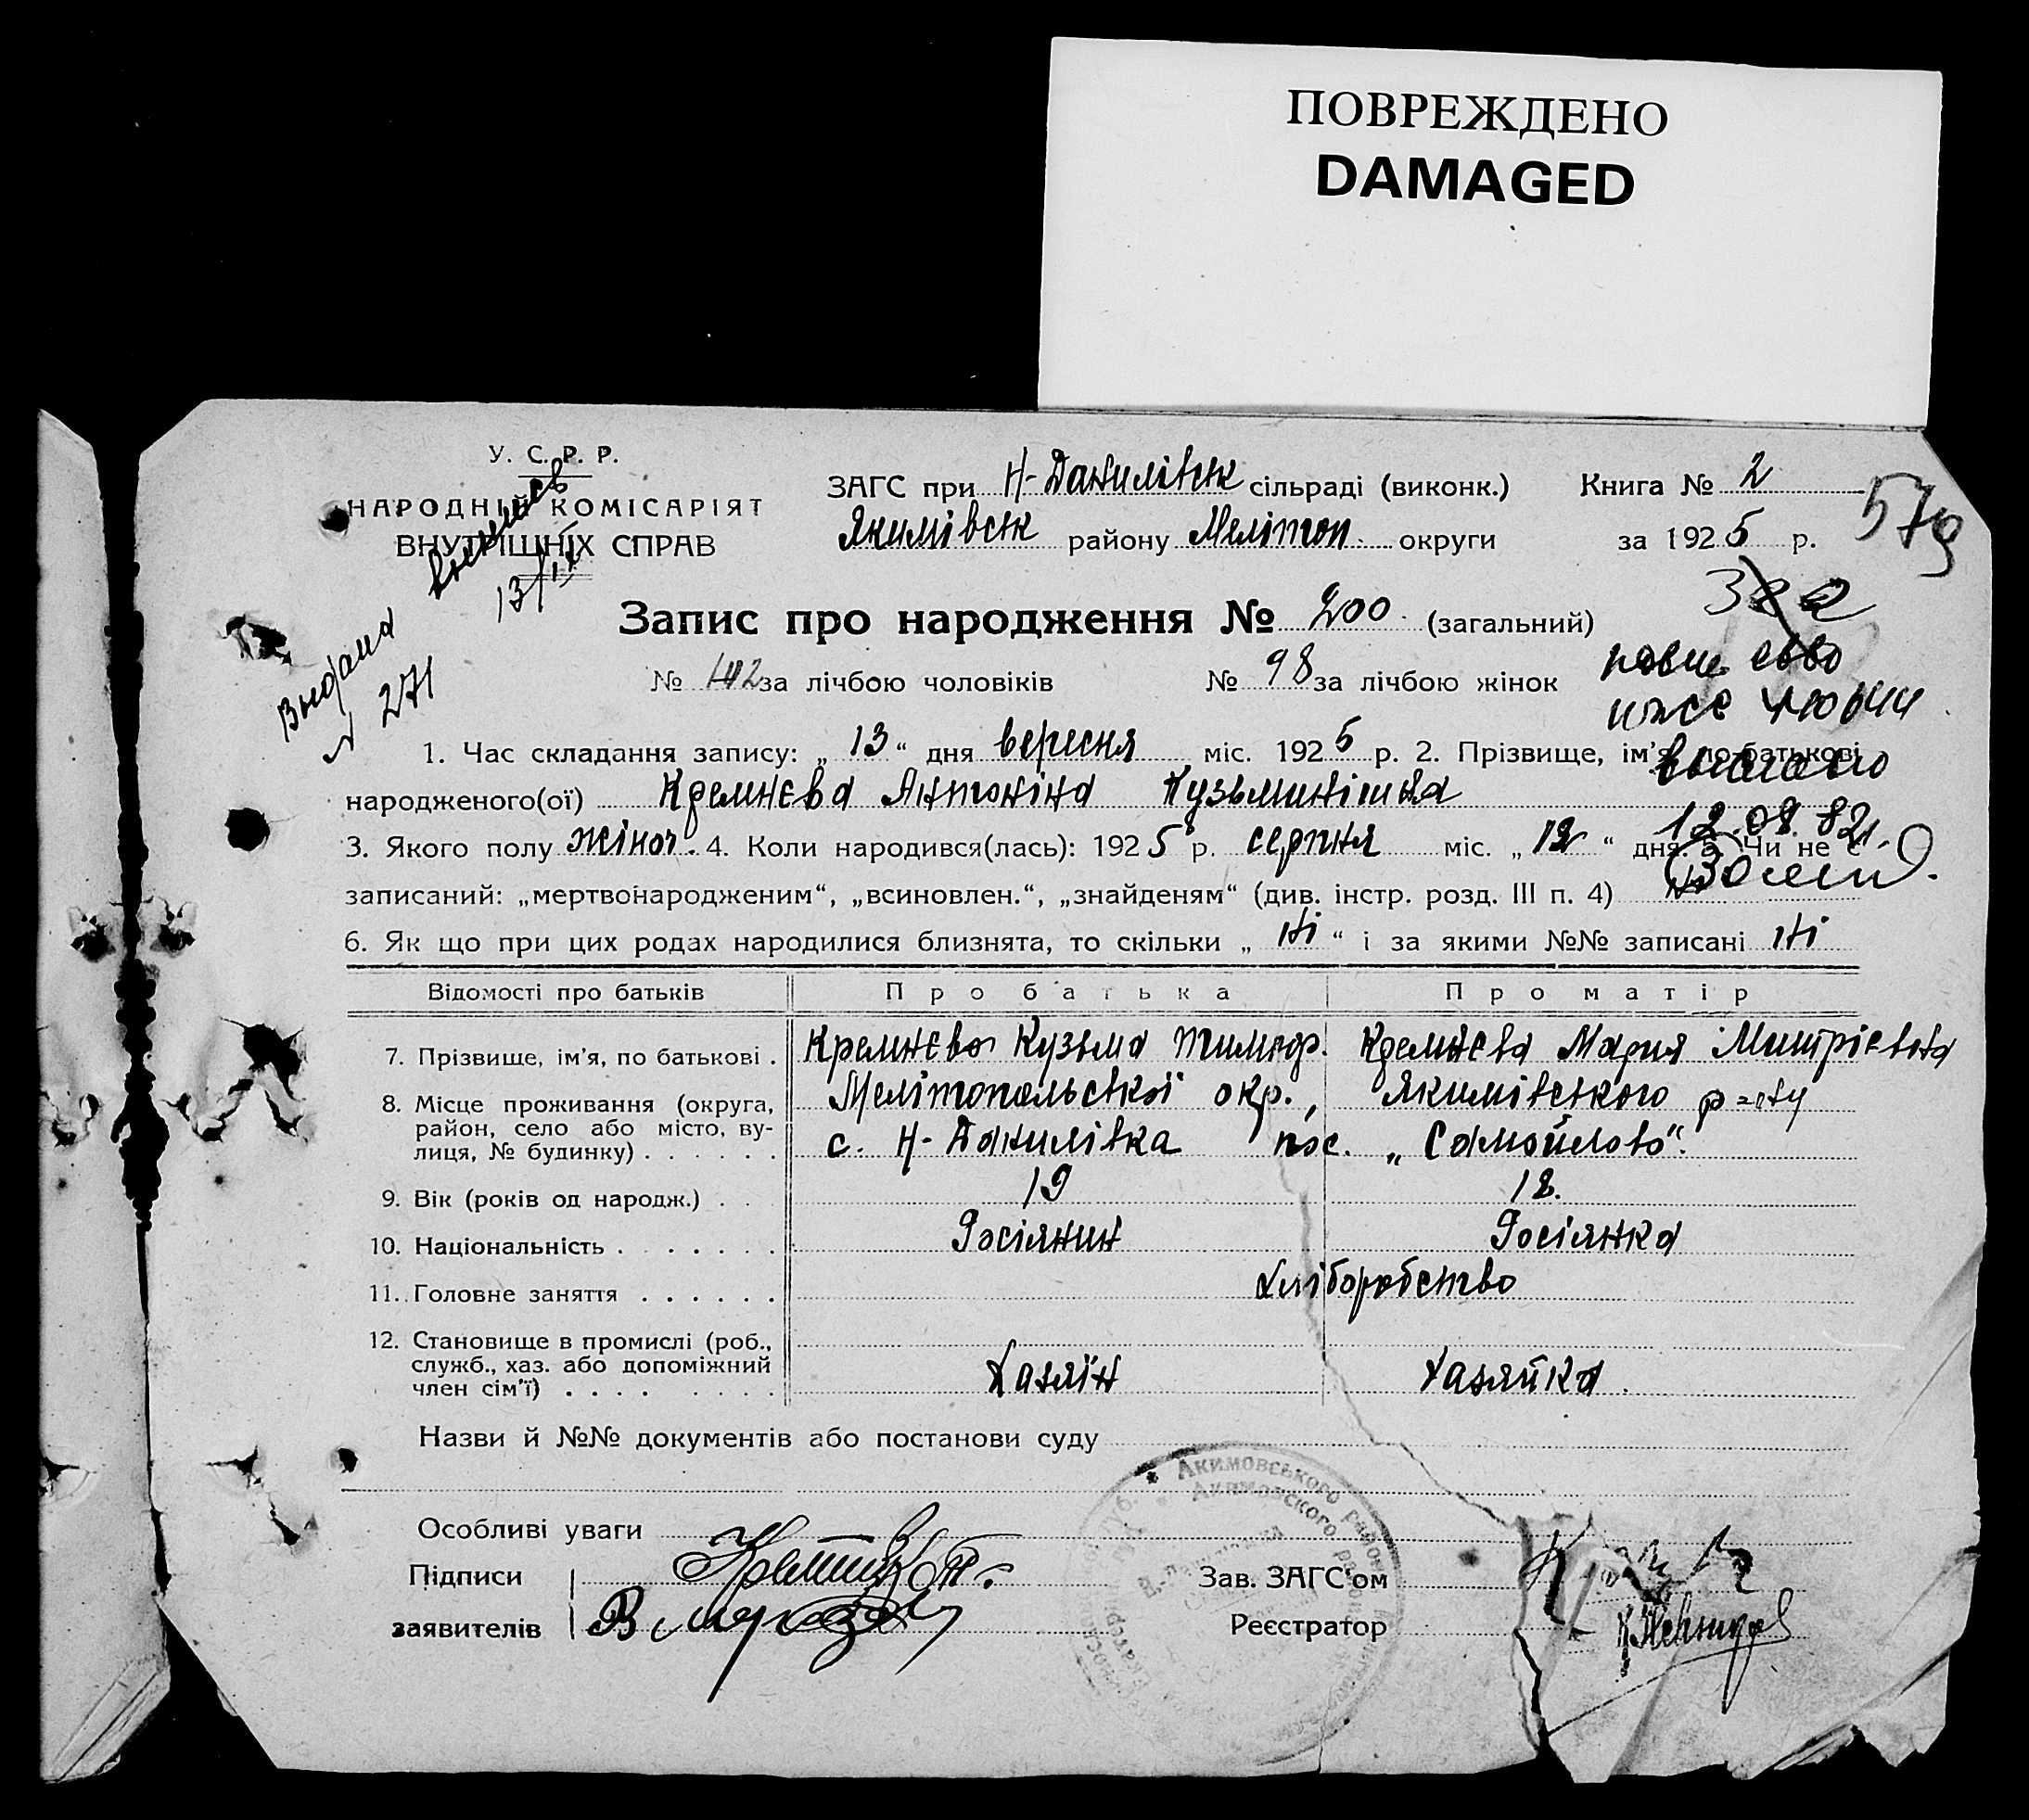 ПОВРЕЖДЕНО
DAMAGED
У. С. Р. Р.
НАРОДНІЙ КОМІСАРІЯТ
ВНУТРІШНІХ СПРАВ
ЗАГС при Н-Данилівськ сільраді (виконк.)
Якимівськ району Мелітоп. округи
Книга № 2
за 1925 р.
579
Выдана
№ 271
13/IX
Запис про народження № 200. (загальний)
№ 102 за лічбою чоловіків № 98 за лічбою жінок
1. Час складання запису: „13“ дня вересня міс. 1925 р. 2. Прізвище, ім'я, по-батькові
народженого(ої) Кремнєва Антоніна Кузьминішна
3. Якого полу жіноч. 4. Коли народився(лась): 1925 р. серпня міс. „12“ дня. 5. Чи не є
записаний: „мертвонародженим“, „всиновлен.“, „знайденям“ (див. інстр. розд. III п. 4)
выслано
12.08.82г.
6. Як що при цих родах народилися близнята, то скільки „ні“ і за якими №№ записані ні
Відомості про батьків Про батька Про матір
7. Прізвище, ім'я, по батькові . Кремнєво Кузьма Тимоф. Кремнєва Мария Митрієвна
8. Місце проживання (округа, Мелітопольської окр., Якимівського р-ну
район, село або місто, ву-
лиця, № будинку) . . . . . . с. Н-Данилівка пос. „Самойлово“.
9. Вік (років од народж.) . . 19 18.
10. Національність . . . . . . . Росіянин Росіянка
11. Головне заняття . . . . . . хліборобство
12. Становище в промислі (роб.,
служб., хаз. або допоміжний
член сім'ї) . . . . . . . . Хазяїн Хазяйка
Назви й №№ документів або постанови суду
Особливі уваги
Підписи
заявителів
Зав. ЗАГС'ом
Реєстратор
Акимовського район
Акимовского район